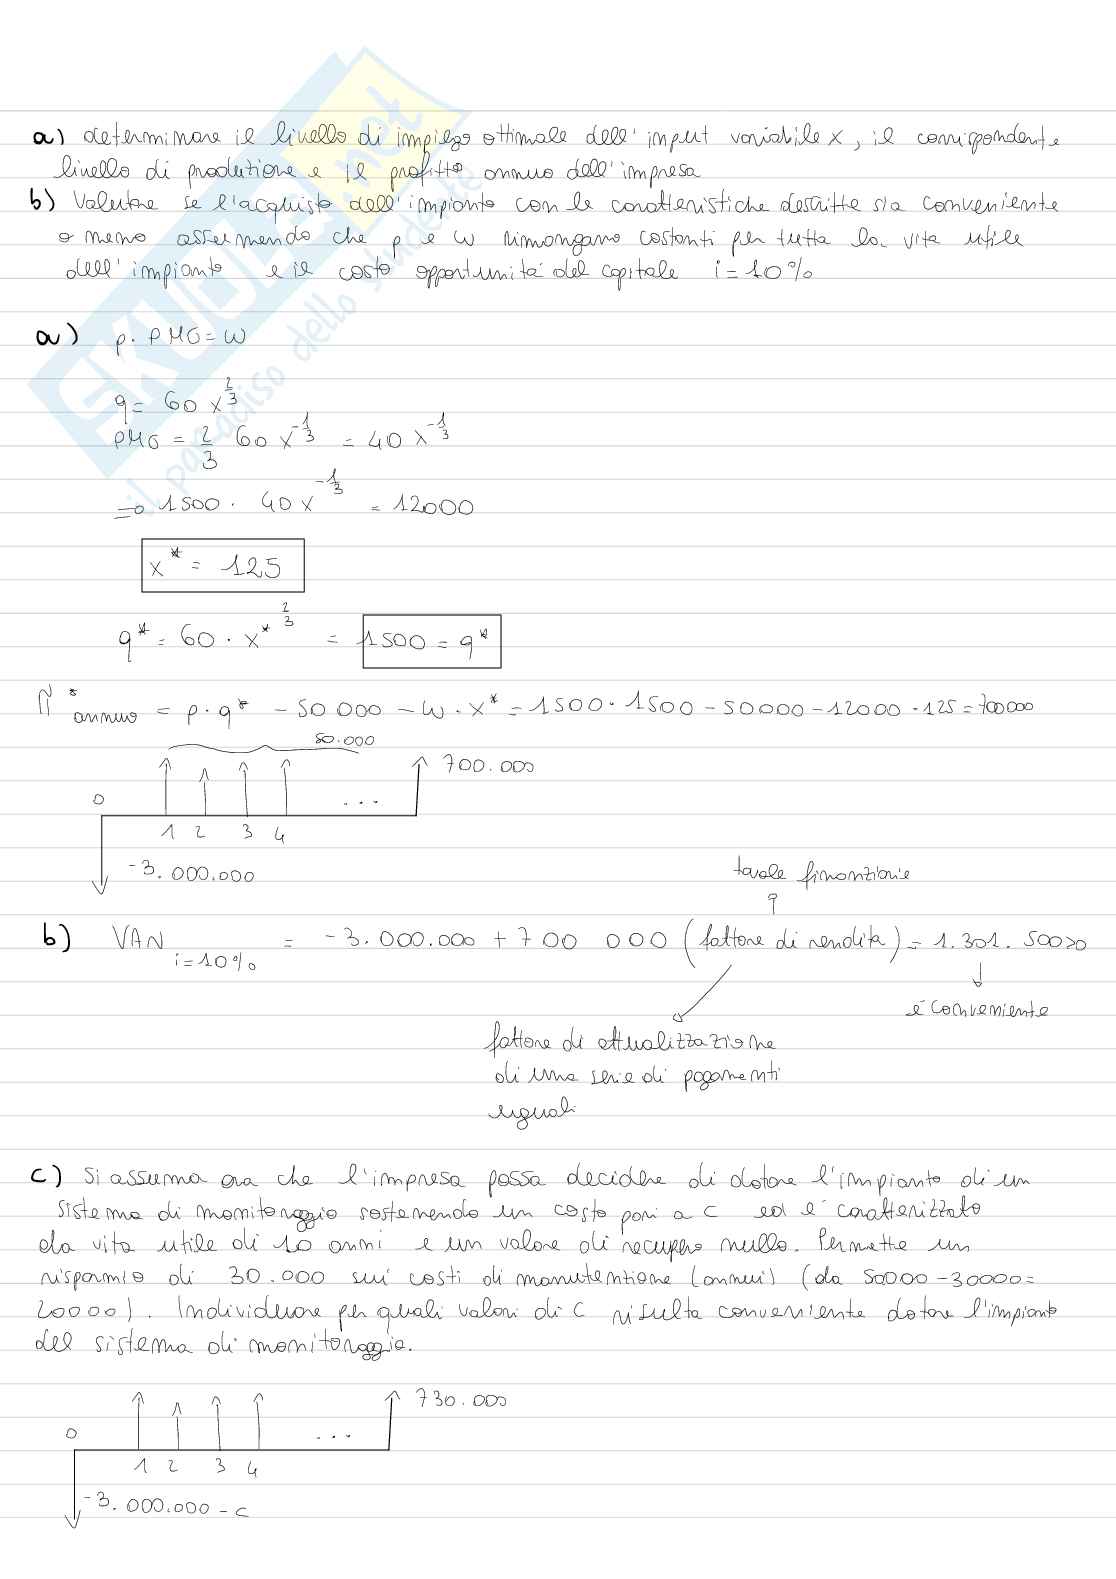 a) determinare il livello di impiego ottimale dell'imput variabile x, il corrispondente
livello di produzione e il profitto annuo dell'impresa
b) Valutare se l'acquisto dell'impianto con le caratteristiche descritte sia conveniente
o meno assumendo che p e w rimongano costanti per tutta la vita utile
dell'impianto e il costo opportunità del capitale i = 10%
a) p · PMG = w
q = 60 x^(2/3)
PMG = 2/3 60 x^(-1/3) = 40 x^(-1/3)
⇒ 1500 · 40 x^(-1/3) = 12000
x* = 125
q* = 60 · x*^(2/3) = 1500 = q*
Π*annuo = p · q* - 50 000 - w · x* = 1500 · 1500 - 50000 - 12000 · 125 = 700000
50.000
700.000
0
...
1 2 3 4
-3.000.000
tavole finanziarie
b) VAN i=10% = -3.000.000 + 700 000 (fattore di rendita) = 1.301.500>0
è conveniente
fattore di attualizzazione
di una serie di pagamenti
uguali
c) Si assuma ora che l'impresa possa decidere di dotare l'impianto di un
sistema di monitoraggio sostenendo un costo pari a c ed è caratterizzato
da vita utile di 10 anni e un valore di recupero nullo. Permette un
risparmio di 30.000 sui costi di manutenzione (annui) (da 50000-30000=
20000). Individuare per quali valori di c risulta conveniente dotare l'impianto
del sistema di monitoraggio.
730.000
0
...
1 2 3 4
-3.000.000 - c
SKUOLA.net
il paradiso dello studente